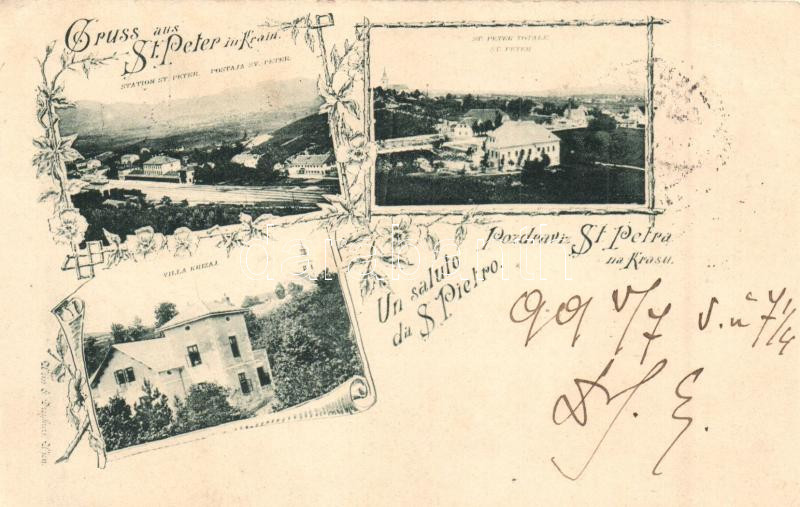 Gruss aus
St. Peter in Krain.
STATION ST. PETER. POSTAJA ST. PETER.
ST. PETER TOTALE
ST. PETER
VILLA KRIZAJ
Pozdrav iz St. Petra
na Krasu.
Un saluto
da S. Pietro.
darabanth
99 V/7